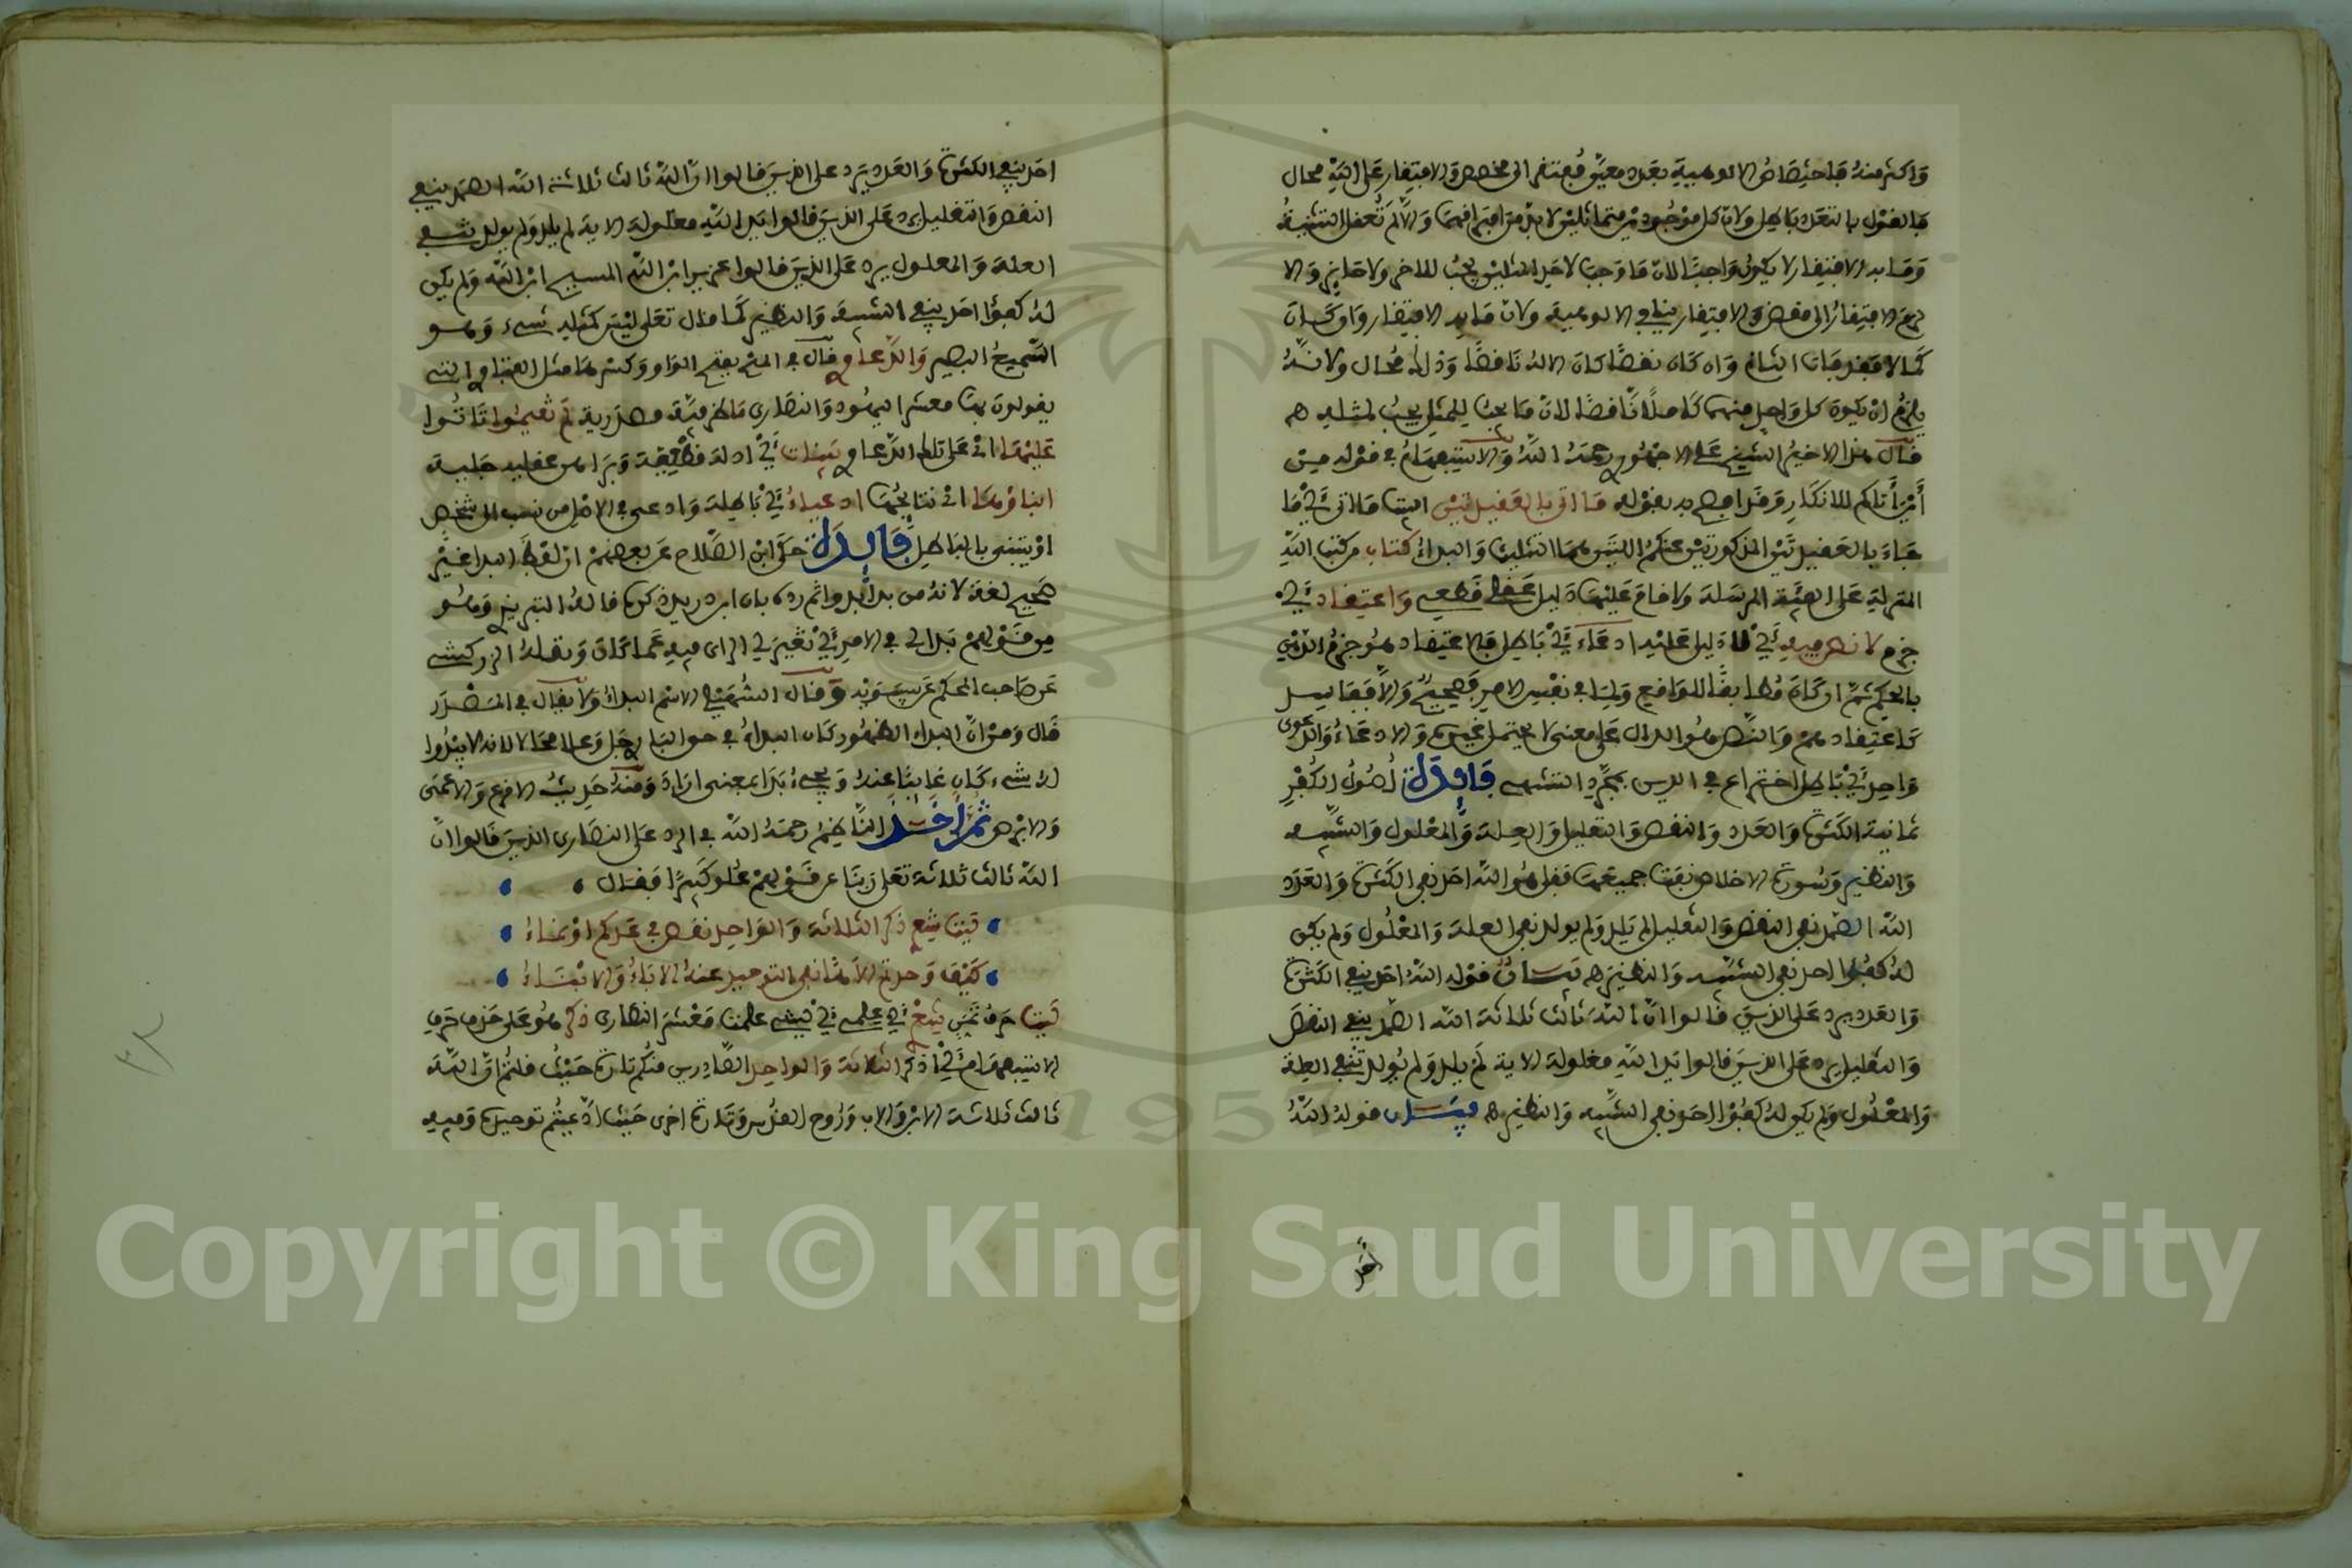 واكثر منه فاختصاص الالوهية بعدد معين مفتقر الى مخصص والافتقار على الله محال
فالقول بالتعدد باطل ولان كل موجودين متماثلين لا بد من امتيازهما والا لم تعقل التثنية
وما به الافتقار لا يكون واجبا لان ما وجب لاحد المثلين يجب للاخر ولا جايز والا
لزم الافتقار الى مخصص والافتقار ينافي الالوهية ولان ما به الافتقار وان كان
كمالا فقد فات الثاني وان كان نقصا كان الاله ناقصا وذلك محال ولانه
يلزم ان يكون كل واحد منهما كاملا ناقصا لان ما يجب للمثل يجب لمثله هـ
قال هذا الاخير الشيخ علي الاجهوري رحمه الله والاستفهام في قوله من
أين أتاكم للانكار وقد افصح به بقوله ما اتى بالعقيدتين البيت ما اتى أي ما
جاء بالعقيدتين المذكورتين عنكم اللتين هما التثليث والبداء كتاب من كتب الله
المنزلة على السنة المرسلة ولا قام عليهما دليل عقلي قطعي واعتقاد أي
جزم لا نص فيه أي لا دليل عليه ادعاء أي باطل فالاعتقاد هو جزم الذهن
بالحكم ثم ان كان مطابقا للواقع ولما في نفس الامر فصحيح والا ففاسد
كاعتقادهم والنص هو الدال على معنى لا يحتمل غيره والادعاء والدعوى
واحد أي باطل اختراع في الدين بمجرد التشهي فايدة أصول الكفر
ثمانية الكثرة والعدد والنقص والتقليل والعلة والمعلول والشبيه
والنظير وسورة الاخلاص نفت جميعها فقل هو الله احد نفى الكثرة والعدد
الله الصمد نفى النقص والتقليل لم يلد ولم يولد نفى العلة والمعلول ولم يكن
له كفوا احد نفى الشبيه والنظير هـ بيان قوله الله احد ينفي الكثرة
والعدد يرد على الذين قالوا ان الله ثالث ثلاثة الله الصمد ينفي النقص
والتقليل يرد على الذين قالوا يد الله مغلولة الاية لم يلد ولم يولد تنفي العلة
والمعلول ولم يكن له كفؤا احد نفى الشبيه والنظير هـ بيان قوله الله
احد
احد ينفي الكثرة والعدد يرد على الذين قالوا ان الله ثالث ثلاثة الله الصمد ينفي
النقص والتقليل يرد على الذين قالوا يد الله مغلولة الاية لم يلد ولم يولد ينفي
العلة والمعلول يرد على الذين قالوا عزير ابن الله المسيح ابن الله ولم يكن
له كفؤا احد ينفي الشبيه والنظير كما قال تعلى ليس كمثله شيء وهو
السميع البصير والدعاوي قال في المنح بفتح الواو وكسرها مثل الفتاوي التي
يقولون بها معشر اليهود والنصارى ما ظرفية مصدرية لم تقيموا تاتوا
عليها اي على تلك الدعاوي بينات أي ادلة قطعية وبراهين عقلية جلية
ابناؤها اي نتائجها ادعياء أي باطلة وادعى في الاصل من نسب الى شخص
او يتبنى بالباطل فايدة حكى ابن الصلاح عن بعضهم ان لفظ البدا غير
صحيح لغة لانه من بدا يبدوا ثم رده بان ابن دريد ذكره قاله التبريزي وهو
من قولهم بدا لي في الامر أي تغير لي الراي فيه عما كان ونقله الزركشي
عن صاحب المحكم عن سيبويه وقال السهيلي الاسم البداء ولا يقال في المصدر
قال ومن ان البداء الظهور كان البداء في حق الباري جل وعلا محالا لانه لا يبدوا
له شيء كان غايبا عنه ويجيء بدا بمعنى اراد ومنه حديث الاقرع والاعمى
والابرص ثم اخذ الناظم رحمه الله في الرد على النصارى الذين قالوا ان
الله ثالث ثلاثة تعلى ربنا عن قولهم علوا كبيرا فقال
ليت شعري ذكر الثلاثة والواحد نقص في عدكم او نماء
كيف وحدتم الاها نفى التوحيد عنه الاباء والابناء
ليت حرف تمني شعري أي علمي أي ليتني علمت معشر النصارى ذكر هو على حذف حرف
الاستفهام أي أذكر الثلاثة والواحد الصادرين منكم تارة حيث قلتم ان الله
ثالث ثلاثة الابن والاب وروح القدس وتارة اخرى حيث ادعيتم توحيده وفيه
Copyright © King Saud University
1957